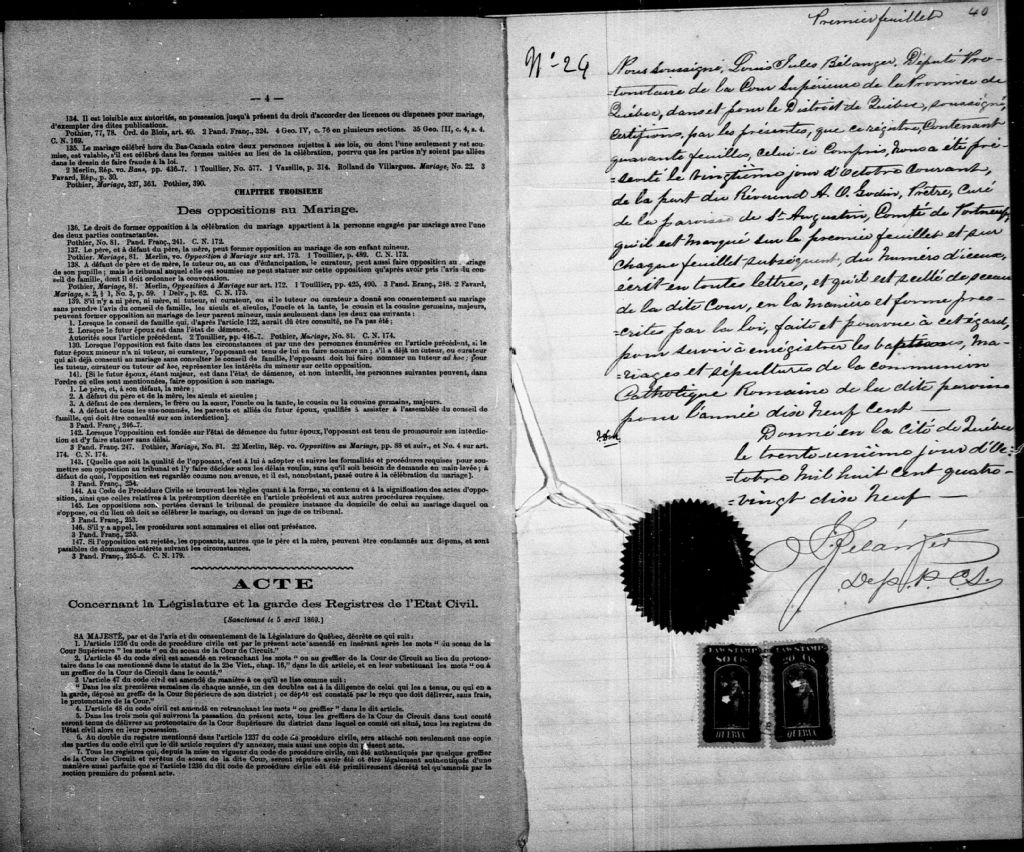 — 4 —
134. Il est loisible aux autorités, en possession jusqu'à présent du droit d'accorder des licences ou dispenses pour mariage,
d'exempter des dites publications.
Pothier, 77, 78. Ord. de Blois, art. 40. 2 Pand. Franç., 324. 4 Geo. IV, c. 76 en plusieurs sections. 35 Geo. III, c. 4, s. 4.
C. N. 169.
135. Le mariage célébré hors du Bas-Canada entre deux personnes sujettes à ses lois, ou dont l'une seulement y est sou-
mise, est valable, s'il est célébré dans les formes usitées au lieu de la célébration, pourvu que les parties n'y soient pas allées
dans le dessin de faire fraude à la loi.
2 Merlin, Rép. vo. Bans, pp. 436-7. 1 Toullier, No. 577. 1 Vazille, p. 314. Rolland de Villargues. Mariage, No. 22. 3
Favard, Rép., p. 30.
Pothier, Mariage, 327, 361. Pothier, 390.
CHAPITRE TROISIEME
Des oppositions au Mariage.
136. Le droit de former opposition à la célébration du mariage appartient à la personne engagée par mariage avec l'une
des deux parties contractantes.
Pothier, No. 81. Pand. Franç., 241. C. N. 172.
137. Le père, et à défaut du père, la mère, peut former opposition au mariage de son enfant mineur.
Pothier. Mariage, 81. Merlin, vo. Opposition au Mariage sur art. 173. 1 Touillier, p. 489. C. N. 173.
138. A défaut de père et de mère, le tuteur ou, au cas d'émancipation, le curateur, peut aussi faire opposition au mariage
de son pupille ; mais le tribunal auquel elle est soumise ne peut statuer sur cette opposition qu'après avoir pris l'avis du con-
seil de famille, dont il doit ordonner la convocation.
Pothier, Mariage, 81. Merlin, Opposition à Mariage sur art. 172. 1 Touillier, pp. 425, 490. 3 Pand. Franç., 248. 2 Favard,
Mariage, s. 2, § 1, No. 3, p. 59. 1 Delv., p. 62. C. N. 175.
139. S'il n'y a ni père, ni mère, ni tuteur, ni curateur, ou si le tuteur ou curateur a donné son consentement au mariage
sans prendre l'avis du conseil de famille, les aïeuls et aïeules, l'oncle et la tante, le cousin et la cousine germains, majeurs,
peuvent former opposition au mariage de leur parent mineur, mais seulement dans les deux cas suivants :
1. Lorsque le conseil de famille qui, d'après l'article 122, aurait dû être consulté, ne l'a pas été ;
2. Lorsque le futur époux est dans l'état de démence.
Autorités sous l'article précédent. 2 Touillier, pp. 416-7. Pothier, Mariage, No. 81. C. N. 174.
130. Lorsque l'opposition est faite dans les circonstances et par une des personnes énumérées en l'article précédent, si le
futur époux mineur n'a ni tuteur, ni curateur, l'opposant est tenu de lui en faire nommer un ; s'il a déjà un tuteur, ou curateur
qui ait déjà consenti au mariage sans consulter le conseil de famille, l'opposant doit lui faire nommer un tuteur ad hoc ; pour
les tuteur, curateur ou tuteur ad hoc, représenter les intérêts du mineur sur cette opposition.
141. [Si le futur époux, étant majeur, est dans l'état de démence, et non interdit, les personnes suivantes peuvent, dans
l'ordre où elles sont mentionnées, faire opposition à son mariage.
1. Le père, et, à son défaut, la mère ;
2. A défaut du père et de la mère, les aïeuls et aïeules ;
3. A défaut de ces derniers, le frère ou la sœur, l'oncle ou la tante, le cousin ou la cousine germains, majeurs.
4. A défaut de tous les sus-nommés, les parents et alliés du futur époux, qualifiés à assister à l'assemblée du conseil de
famille, qui doit être consulté sur son interdiction].
3 Pand. Franç., 246-7.
142. Lorsque l'opposition est fondée sur l'état de démence du futur époux, l'opposant est tenu de promouvoir son interdic-
tion et d'y faire statuer sans délai.
3 Pand. Franç. 247. Pothier, Mariage, No. 81. 22 Merlin, Rép. vo. Opposition au Mariage, pp. 88 et suiv., et No. 4 sur art.
174. C. N. 174.
143. [Quelle que soit la qualité de l'opposant, c'est à lui à adopter et suivre les formalités et procédures requises pour sou-
mettre son opposition au tribunal et l'y faire décider sous les délais voulus, sans qu'il soit besoin de demande en main-levée ; à
défaut de quoi, l'opposition est regardée comme non avenue, et il est, nonobstant, passé outre à la célébration du mariage].
3 Pand. Franç., 254.
144. Au Code de Procédure Civile se trouvent les règles quant à la forme, au contenu et à la signification des actes d'oppo-
sition, ainsi que celles relatives à la péremption décrétée en l'article précédent et aux autres procédures requises.
145. Les oppositions son portées devant le tribunal de première instance du domicile de celui au mariage duquel on
s'oppose, ou du lieu où doit se célébrer le mariage, ou devant un juge de ce tribunal.
3 Pand. Franç., 253.
146. S'il y a appel, les procédures sont sommaires et elles ont préséance.
3 Pand. Franç., 253.
147. Si l'opposition est rejetée, les opposants, autres que le père et la mère, peuvent être condamnés aux dépens, et sont
passibles de dommages-intérêts suivant les circonstances.
3 Pand. Franç., 255-6. C. N. 179.
ACTE
Concernant la Législature et la garde des Registres de l'Etat Civil.
[Sanctionné le 5 avril 1869.]
SA MAJESTÉ, par et de l'avis et du consentement de la Législature de Québec, décrète ce qui suit :
1. L'article 1236 du code de procédure civile est par le présent acte amendé en insérant après les mots " du sceau de la
Cour Supérieure " les mots " ou du sceau de la Cour de Circuit."
2. L'article 45 du code civil est amendé en retranchant les mots " ou au greffier de la Cour de Circuit au lieu du protono-
taire dans le cas mentionné dans le statut de la 25e Vict., chap. 16," dans le dit article, et en leur substituant les mots " ou à
un greffier de la Cour de Circuit dans le comté."
3 L'article 47 du code civil est amendé de manière à ce qu'il se lise comme suit :
" Dans les six premières semaines de chaque année, un des doubles est à la diligence de celui qui les a tenus, ou qui en a
la garde, déposé au greffe de la Cour Supérieure de son district ; ce dépôt est constaté par le reçu que doit délivrer, sans frais,
le protonotaire de la Cour."
4. L'article 48 du code civil est amendé en retranchant les mots " ou greffier " dans le dit article.
5. Dans les trois mois qui suivront la passation du présent acte, tous les greffiers de la Cour de Circuit dans tout comté
seront tenus de délivrer au protonotaire de la Cour Supérieure du district dans lequel ce comté est situé, tous les registres de
l'état civil alors en leur possession.
6. Au double du registre mentionné dans l'article 1237 du code de procédure civile, sera attaché non seulement une copie
des parties du code civil que le dit article requiert d'y annexer, mais aussi une copie du présent acte.
7. Tous les registres qui, depuis la mise en vigueur du code de procédure civile, ont été authentiqués par quelque greffier
de la Cour de Circuit et revêtus du sceau de la dite Cour, seront réputés avoir été et être légalement authentiqués d'une
manière aussi parfaite que si l'article 1236 du dit code de procédure civile eût été primitivement décrété tel qu'amendé par la
section première du présent acte.
Premier feuillet 40
No 24
Nous soussigné, Louis Jules Bélanger, Député Pro-
=tonotaire de la Cour Supérieure de la Province de
Québec, dans et pour le District de Québec, soussigné,
Certifions, par les présentes, que ce régistre, Contenant
quarante feuilles, celui-ci Compris, nous a été pré-
=senté le vingtième jour d'Octobre Courant,
de la part du Révérend A. O. Godin, Prêtre, Curé
de la paroisse de St Augustin, Comté de Portneuf,
qu'il est marqué sur le premier feuillet et sur
Chaque feuillet subséquent, du Numéro d'iceux,
écrit en toutes lettres, et qu'il est scellé du sceau
de la dite Cour, en la manière et forme pres-
=crites par la loi, faits et pourvu à cet égard,
pour servir à enrégistrer les baptêmes, ma-
=riages et sépultures de la communion
Catholique Romaine de la dite paroisse
pour l'année dix neuf cent
Donné en la Cité de Québec
le trente-unième jour d'Oc-
=tobre Mil huit cent quatre-
=vingt dix neuf —
J. Bélanger
Dép. P. C. S.
LAW STAMP
80 Cts
QUEBEC
LAW STAMP
20 Cts
QUEBEC